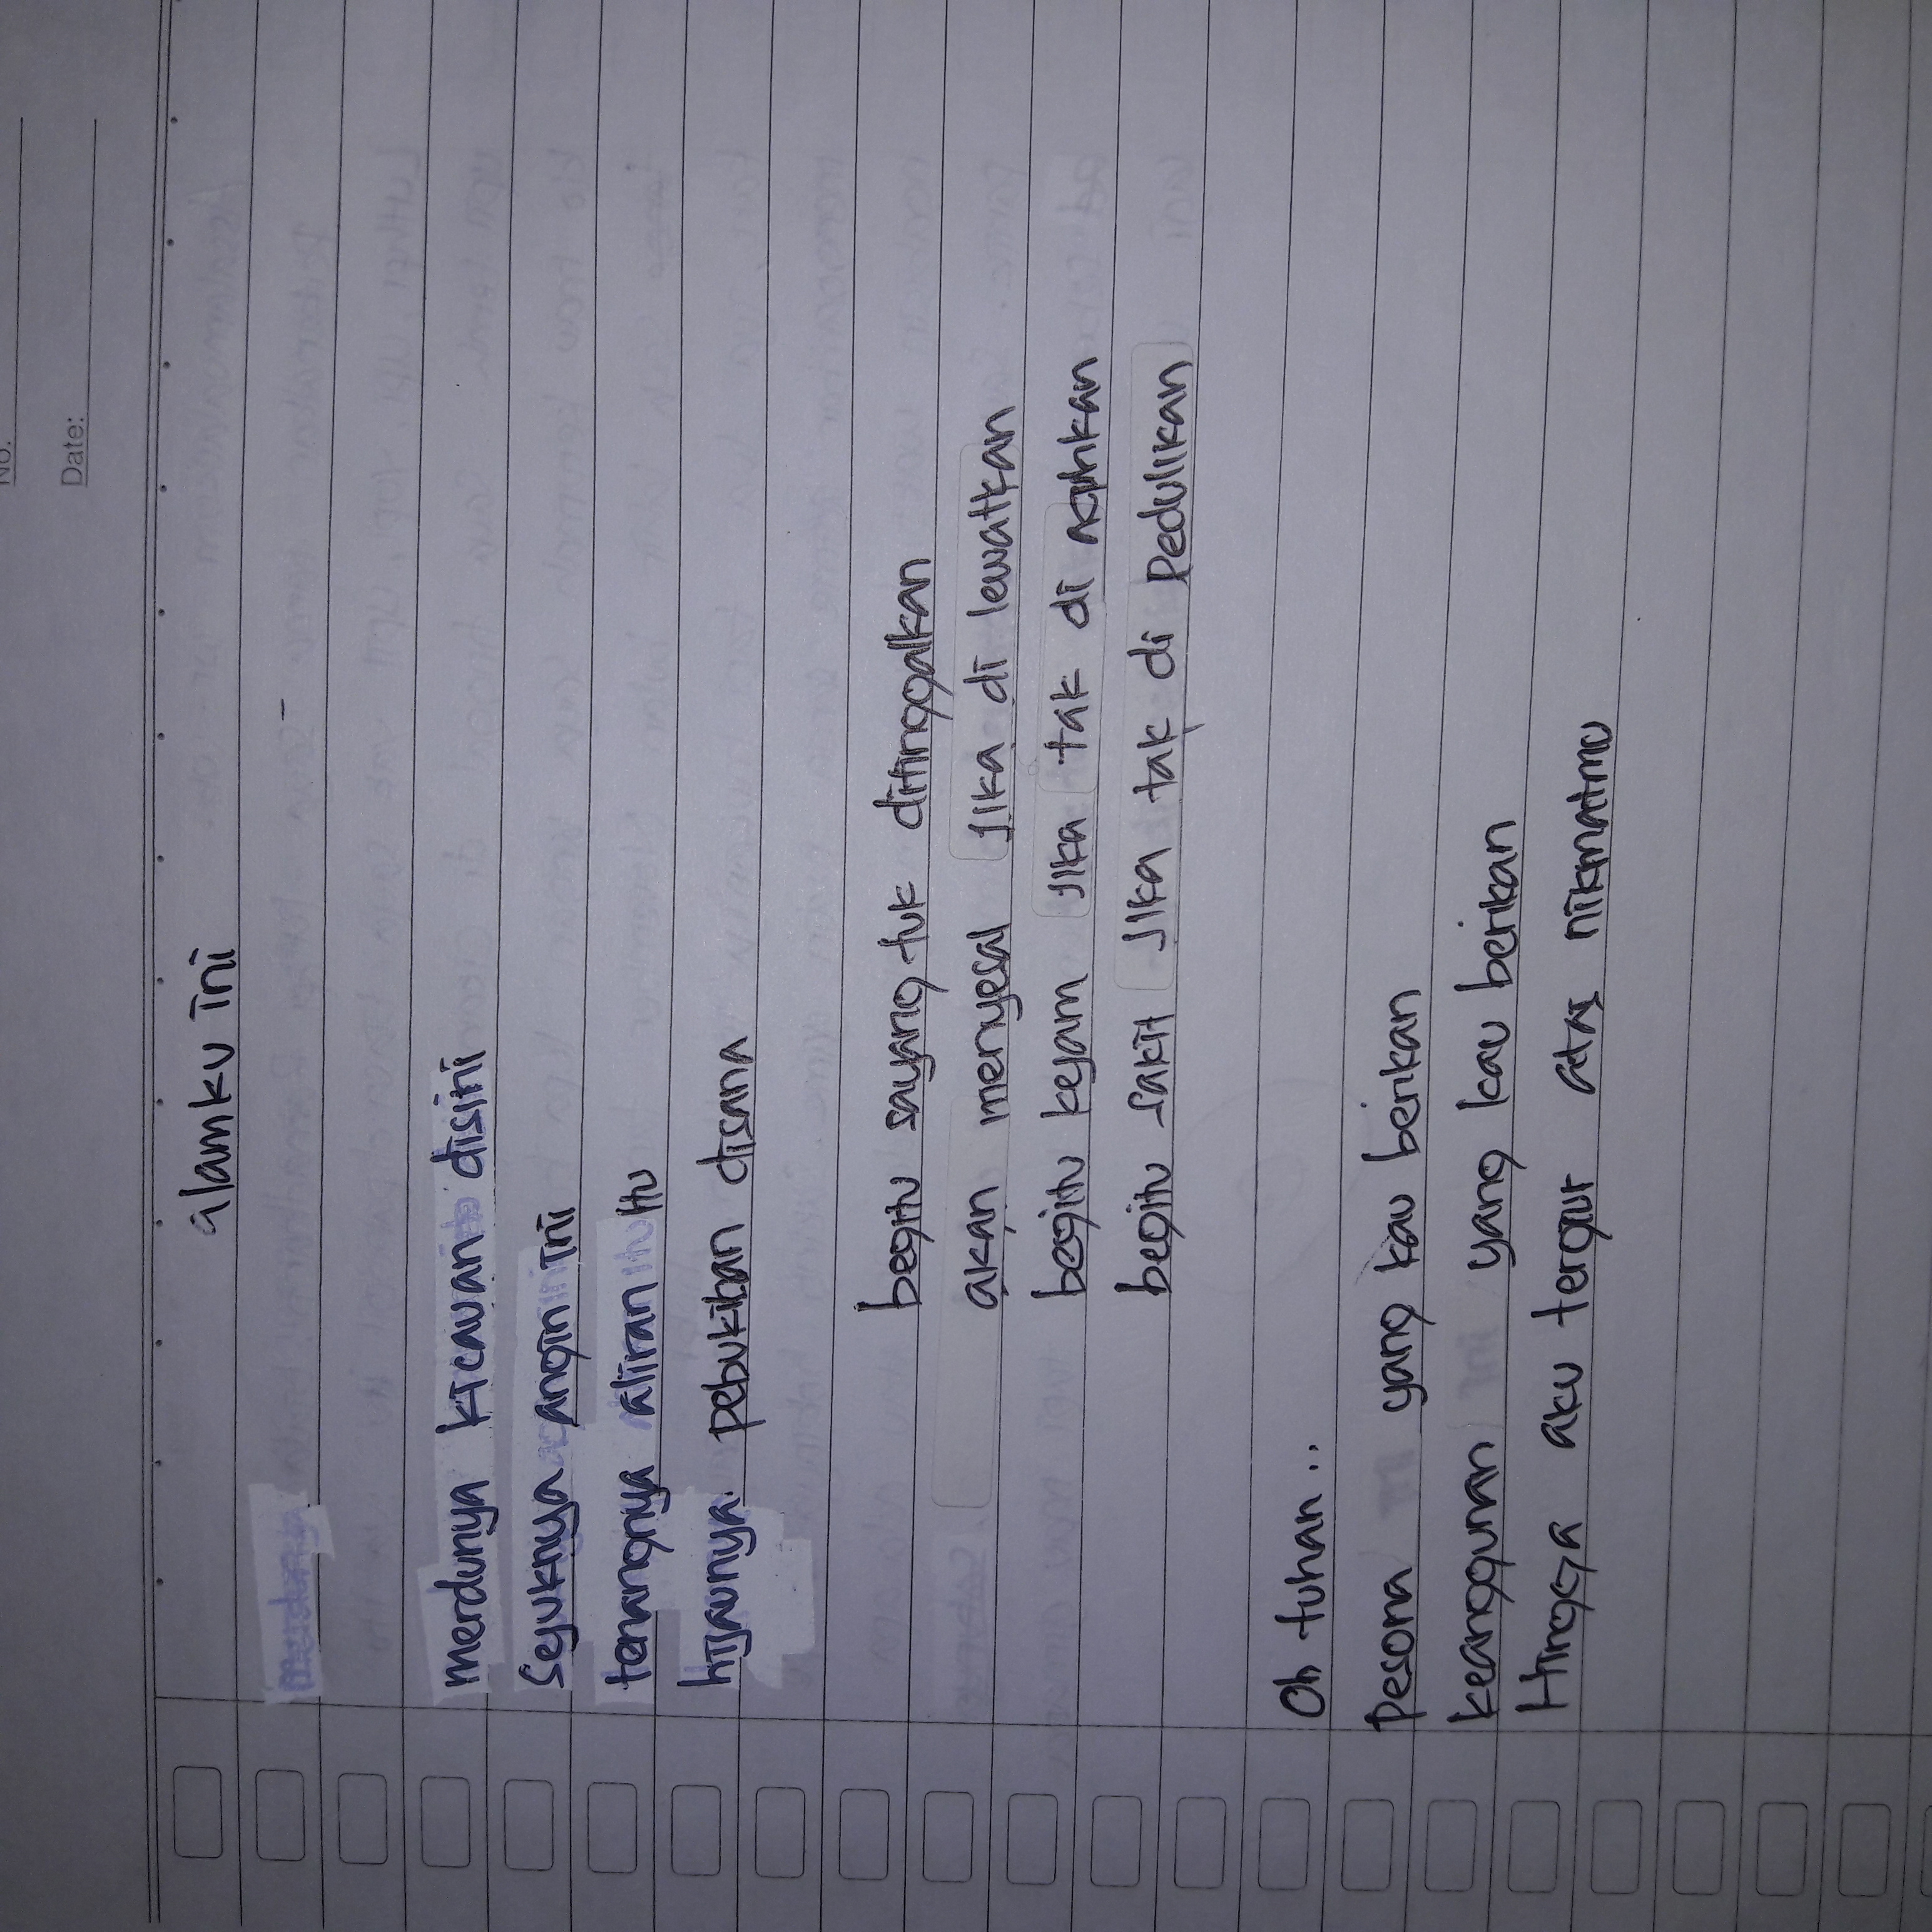 No.
Date:
alamku ini
merdunya kicauan disini
Sejuknya angin ini
tenangnya aliran itu
hijaunya pebukitan disana
begitu sayang tuk ditinggalkan
akan menyesal jika di lewatkan
begitu kejam jika tak di
begitu sakit jika tak di Pedulikan
Oh tuhan..
Pesona yang kau berikan
keanggunan yang kau berikan
Hingga aku tergiur atas nikmatmu